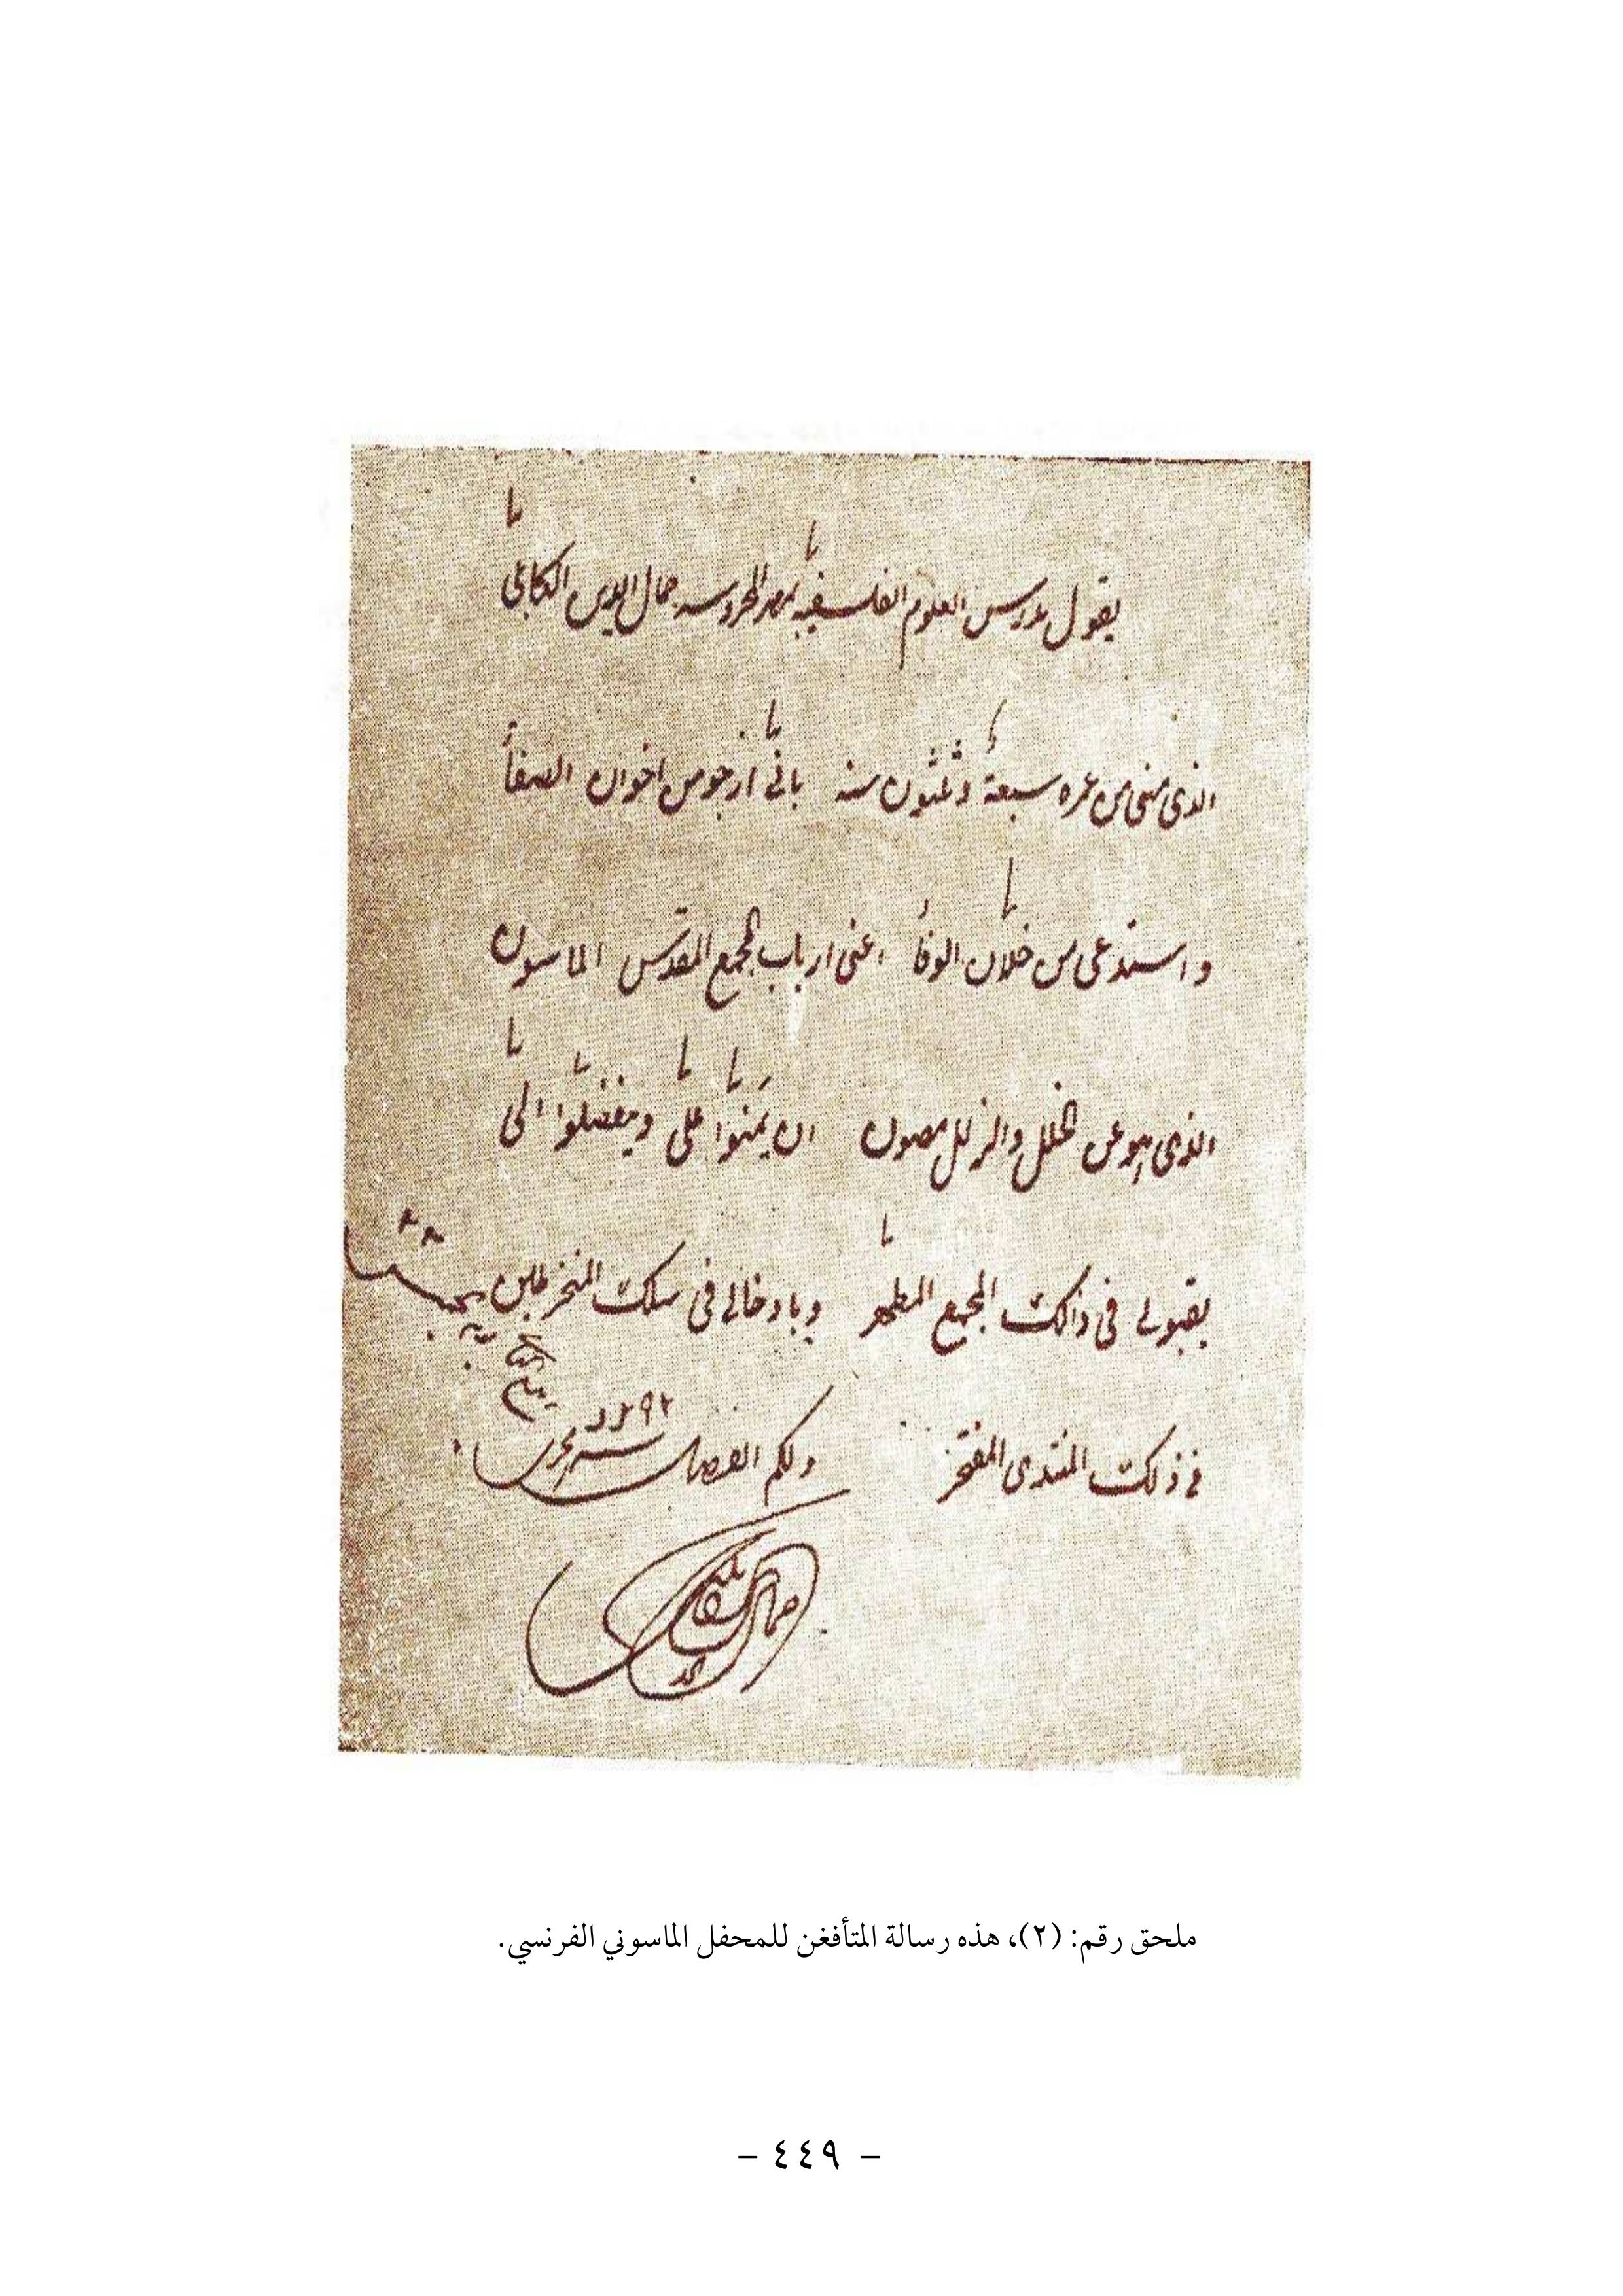 يقول مدرس العلوم الفلسفية بمصر المحروسه جمال الدين الكابلى
الذى مضى من عمره سبعة وثلثون سنه بانى ارجو من اخوان الصفا
واستدعى من خلان الوفا اعنى ارباب المجمع المقدس الماسون
الذى هو عن الخلل والزلل مصون ان يمنوا على ويتفضلوا الى
بقبولى فى ذالك المجمع المطهر وبادخالى فى سلك المنخرطين
فى ذلك المنتدى المفتخر ولكم الفضل
١٢٩٢
جمال الدين
ملحق رقم: (٢)، هذه رسالة المتأفغن للمحفل الماسوني الفرنسي.
- ٤٤٩ -